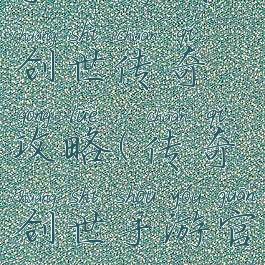 chuàng shì chuán qí
创世传奇
gōng lüè chuán qí
攻略(传奇
chuàng shì shǒu yóu guān
创世手游官